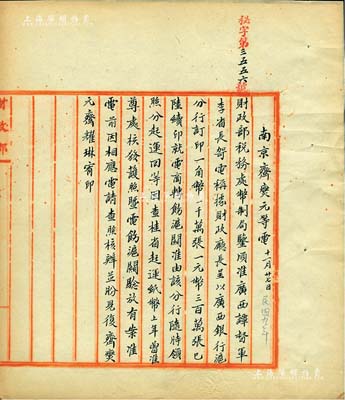 秘字第三五五六號
南京齊燮元等電 十一月廿七日
財政部稅務處幣制局鑒頃准廣西譚督軍
李省長幹電稱據財政廳長呈以廣西銀行滬
分行訂印一角幣一千萬張一元幣三百萬張已
陸續印就電商轉飭滬關准由該分行隨時領
照分起運回等因查桂省起運紙幣上年曾准
尊處核發護照暨電飭滬關驗放有案准
電前因相應電請查照核辦並盼見復齊燮
元齊耀琳宥印
財政部